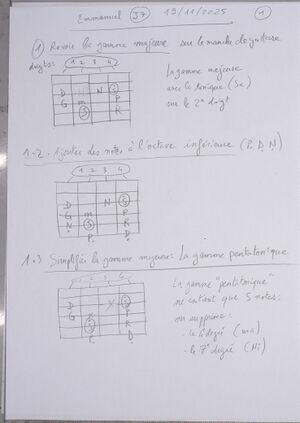 Emmanuel 37 19/11/2025 1
1) Revoir la gamme majeure sur le manche de guitare
doigts: 1 2 3 4
La gamme majeure
avec la tonique (Sa)
sur le 2e doigt
D N S
G m P
S R
1-2 - Ajouter des notes à l'octave inférieure (P. D. N.)
1 2 3 4
N S
D P
G m R
N S
P D
1.3 Simplifier la gamme majeure: La gamme pentatonique
1 2 3 4
La gamme "pentatonique"
ne contient que 5 notes:
on supprime:
- le 4e degré (ma)
- le 7e degré (Ni)
D X S
G X P
S R
P. D.